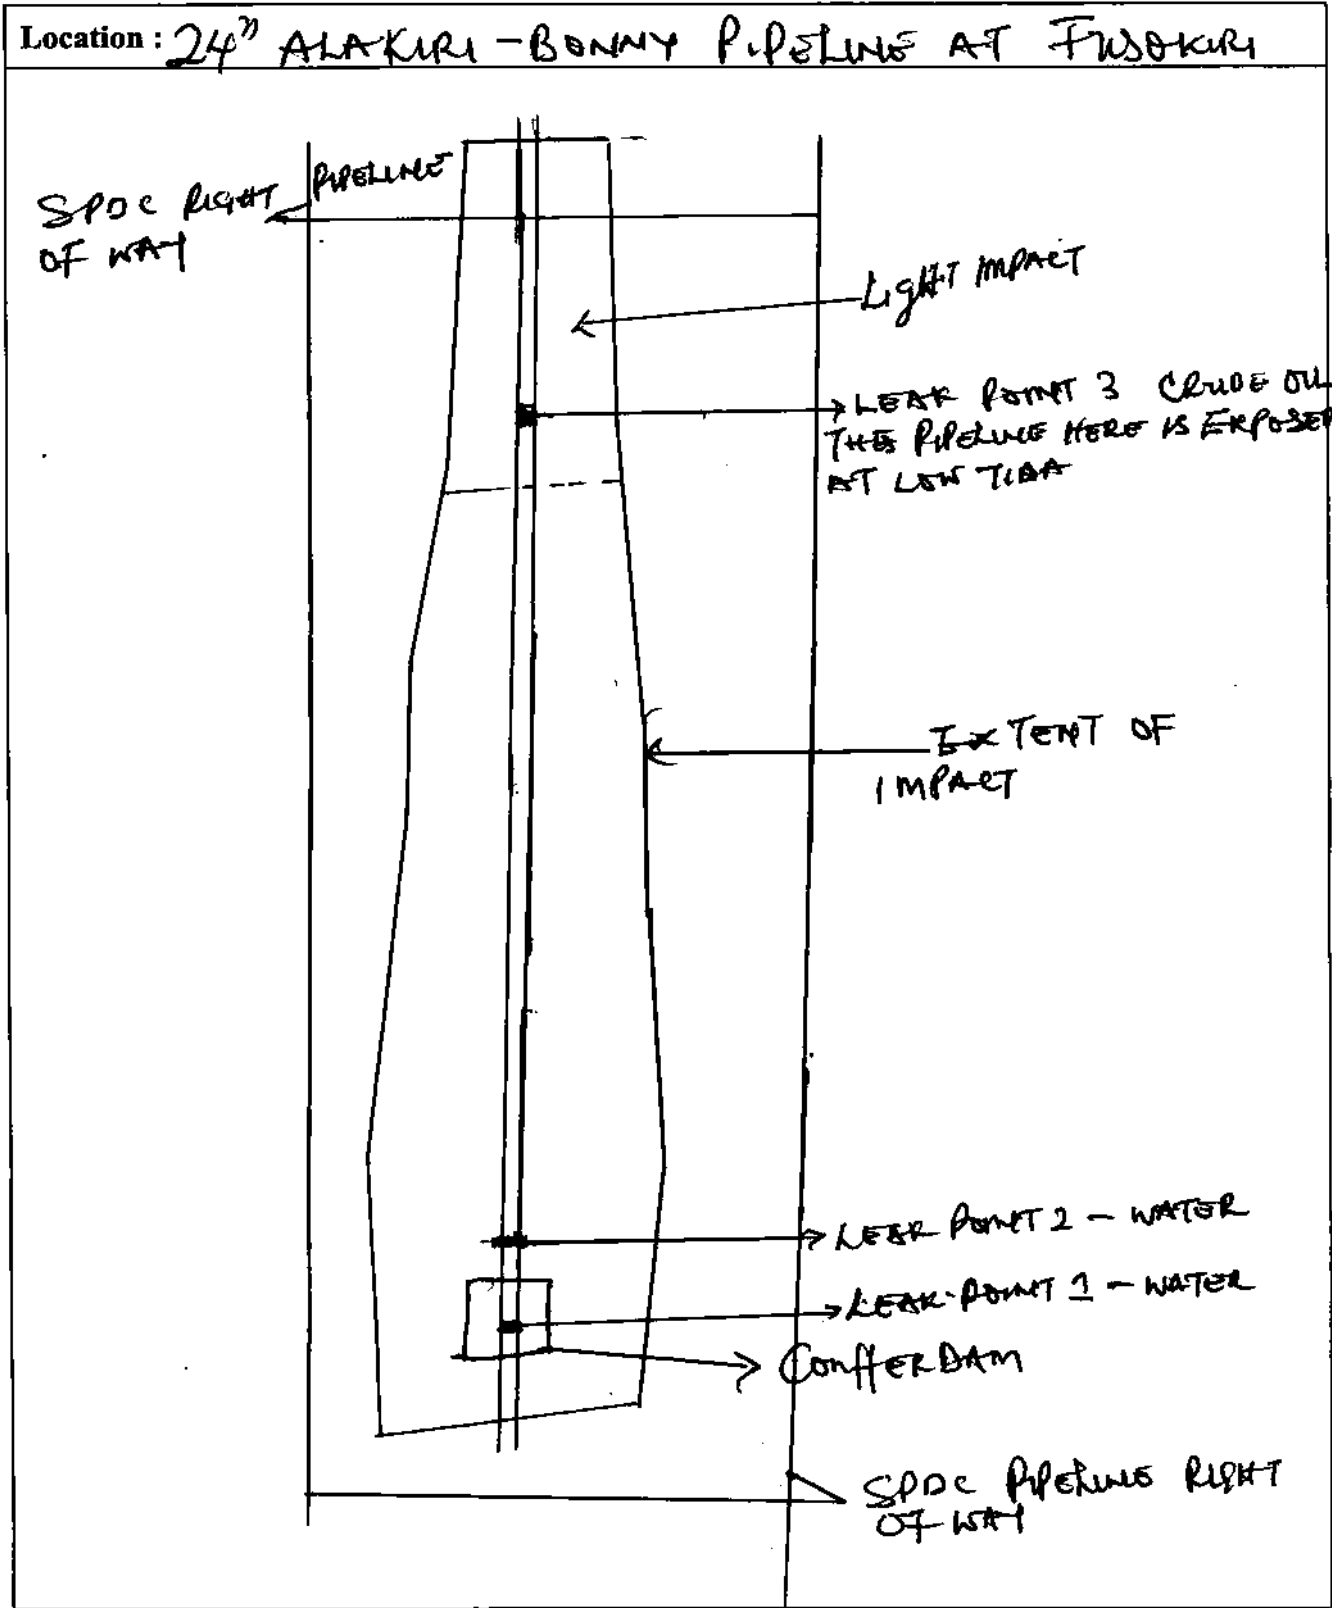 Location : 24" ALAKIRI - BONNY PIPELINE AT FUSOKIRI
SPDC RIGHT PIPELINE
OF WAY
LIGHT IMPACT
LEAK POINT 3 CRUDE OIL
THE PIPELINE HERE IS EXPOSED
AT LOW TIDA
EXTENT OF
IMPACT
LEAK POINT 2 - WATER
LEAK POINT 1 - WATER
CONFFERDAM
SPDC PIPELINE RIGHT
OF WAY